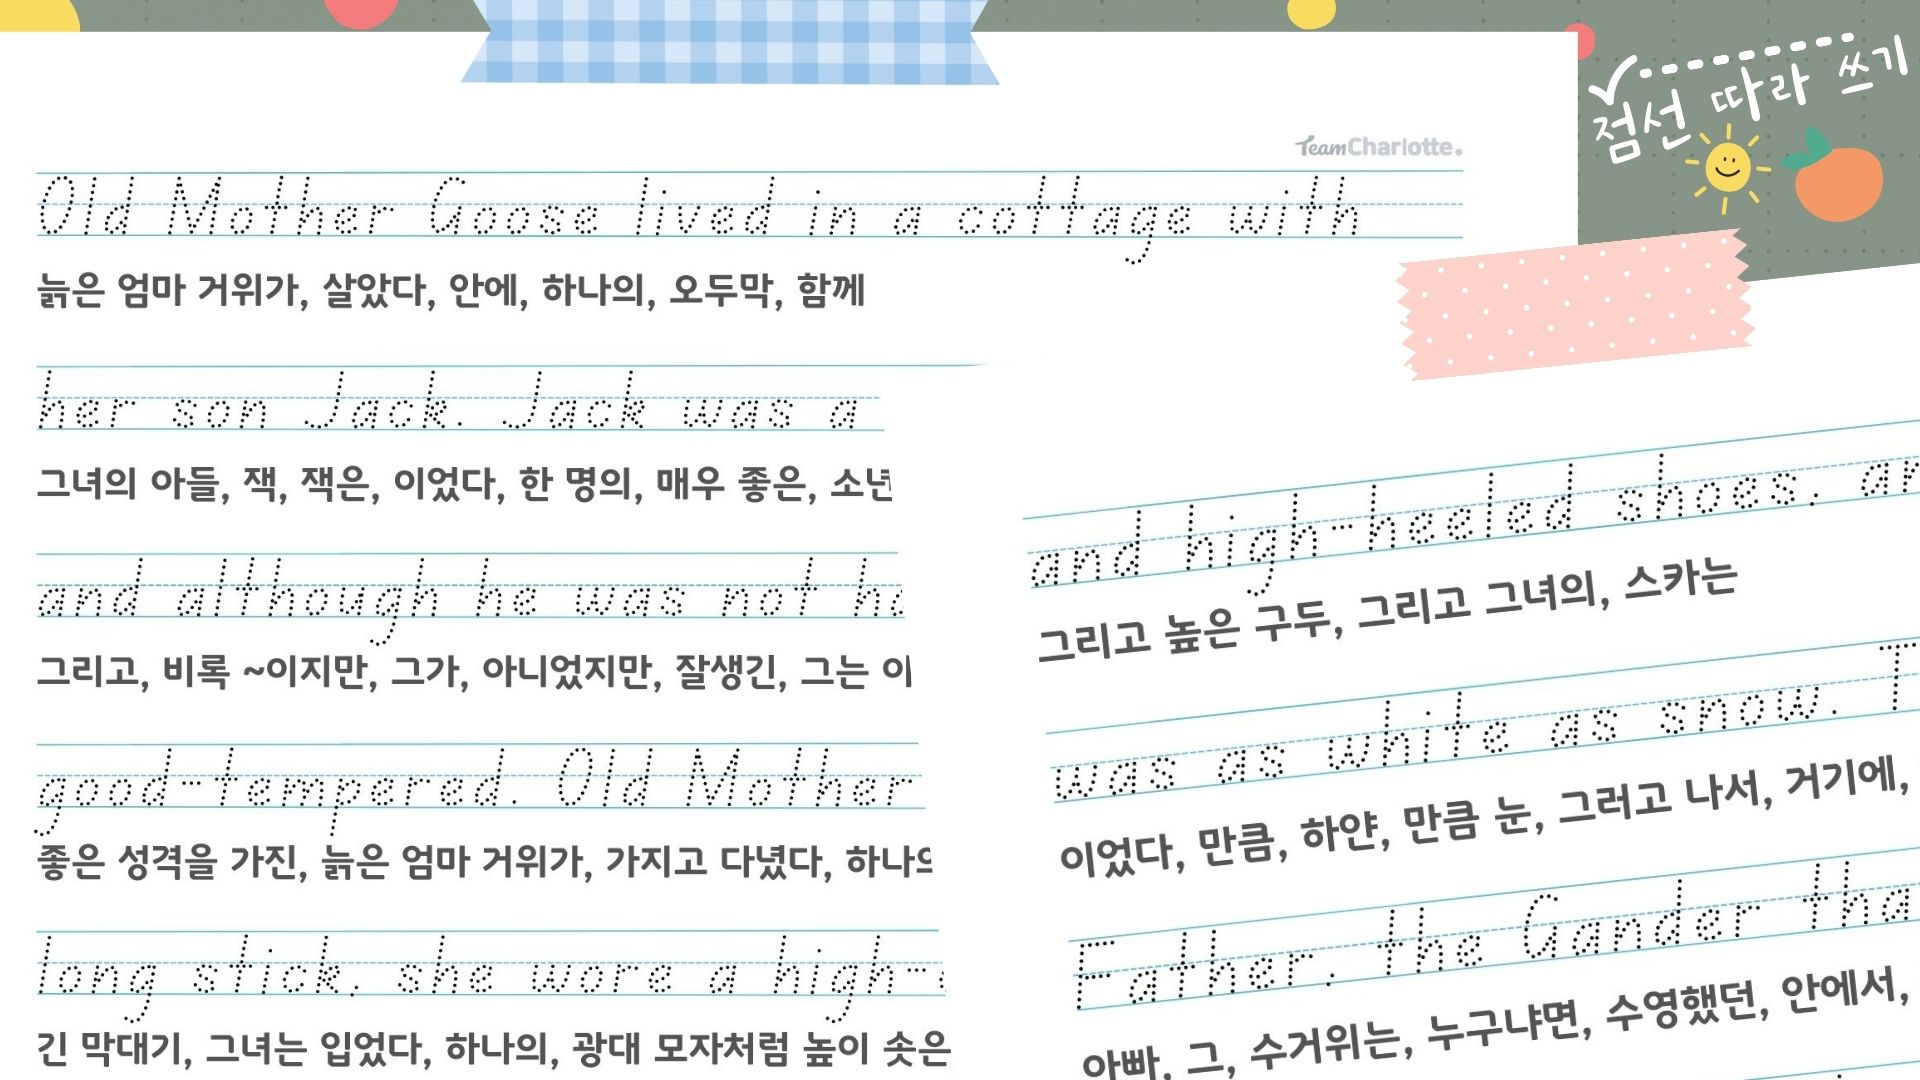 TeamCharlotte.
Old Mother Goose lived in a cottage with
늙은 엄마 거위가, 살았다, 안에, 하나의, 오두막, 함께
her son Jack. Jack was a
그녀의 아들, 잭, 잭은, 이었다, 한 명의, 매우 좋은, 소년
and although he was not
그리고, 비록 ~이지만, 그가, 아니었지만, 잘생긴, 그는
good-tempered. Old Mother
좋은 성격을 가진, 늙은 엄마 거위가, 가지고 다녔다,
long stick. she wore a high-
긴 막대기, 그녀는 입었다, 하나의, 광대 모자처럼 높이 솟은
점선 따라 쓰기
and high-heeled shoes.
그리고 높은 구두, 그리고 그녀의, 스카는
was as white as snow.
이었다, 만큼, 하얀, 만큼 눈, 그러고 나서, 거기에,
Father. the Gander
아빠, 그, 수거위는, 누구냐면, 수영했던, 안에서,